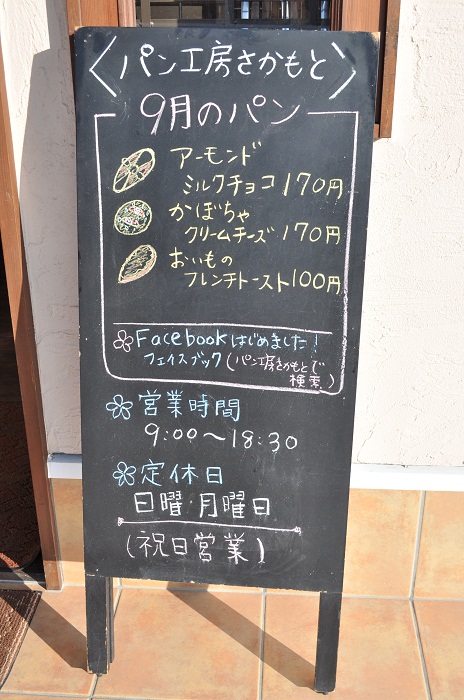 パン工房さかもと
9月のパン
アーモンド
ミルクチョコ 170円
かぼちゃ
クリームチーズ 170円
おいもの
フレンチトースト 100円
Facebookはじめました！
フェイスブック（パン工房さかもとで
検索）
営業時間
9:00〜18:30
定休日
日曜・月曜日
（祝日営業）